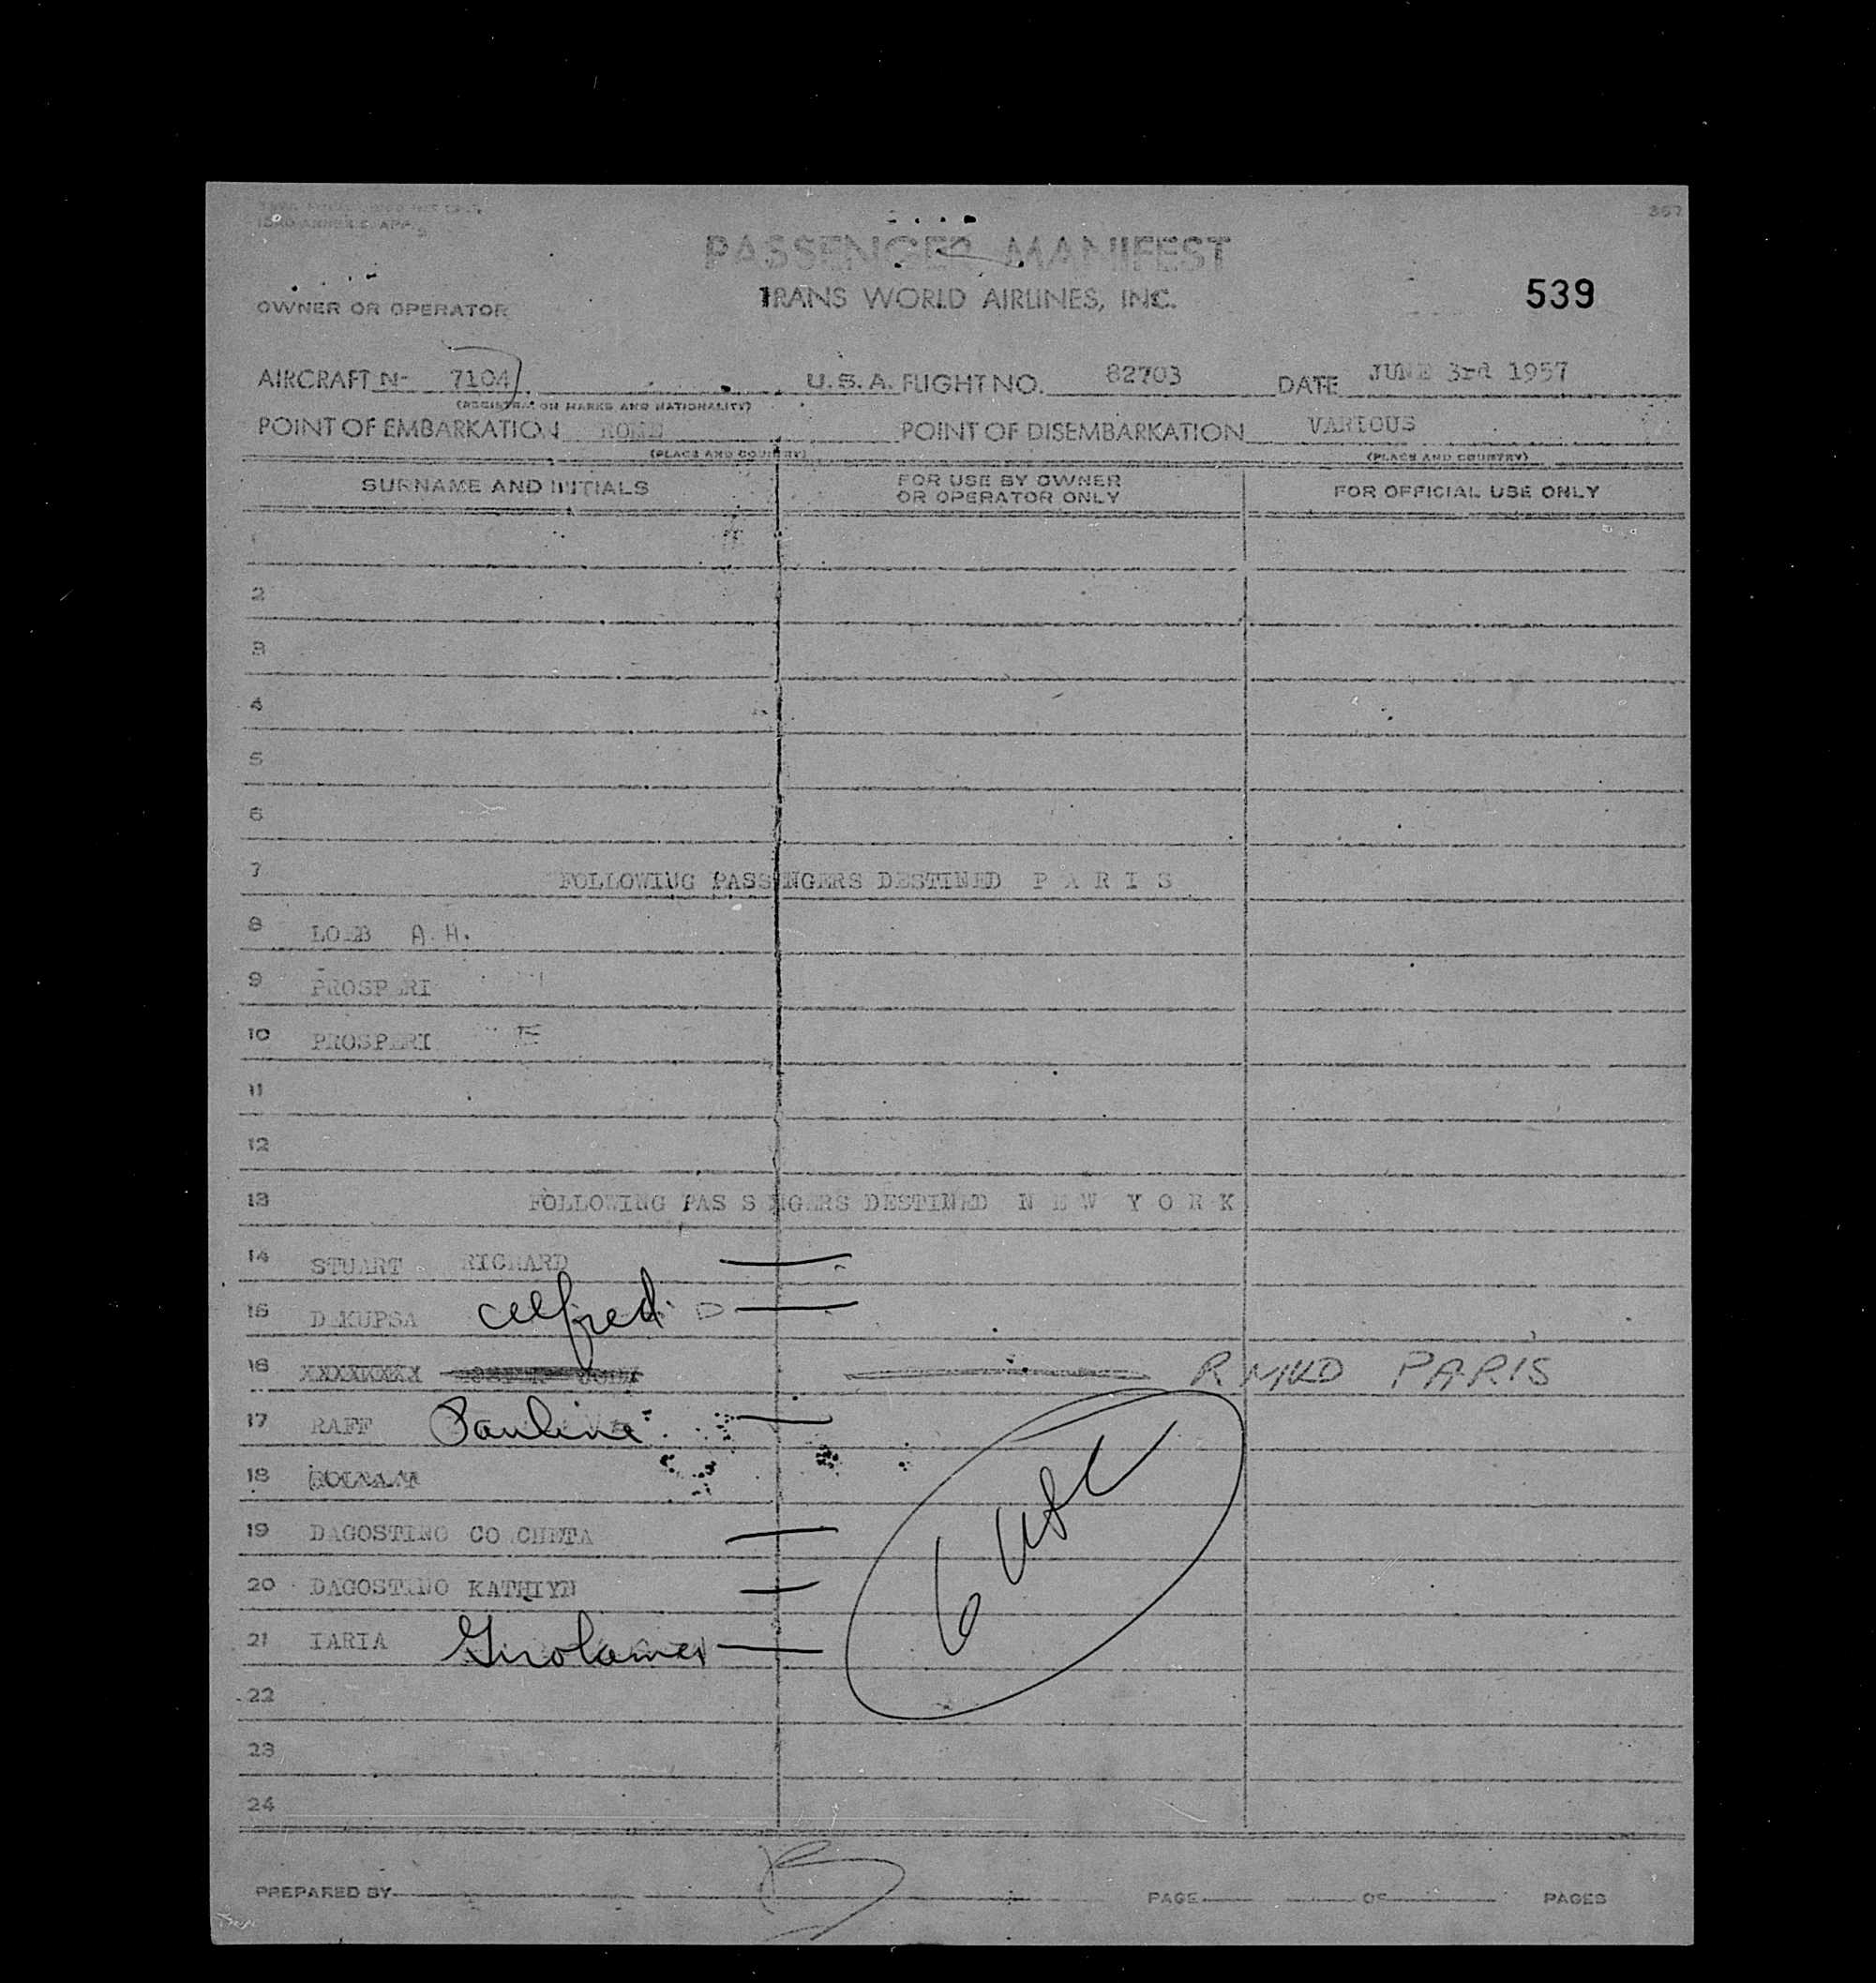 367
PASSENGER MANIFEST
TRANS WORLD AIRLINES, INC.
539
OWNER OR OPERATOR
AIRCRAFT N- 7104 U.S.A. FLIGHT NO. 82703 DATE JUNE 3rd 1957
(REGISTRATION MARKS AND NATIONALITY)
POINT OF EMBARKATION ROME POINT OF DISEMBARKATION VARIOUS
(PLACE AND COUNTRY) (PLACE AND COUNTRY)
SURNAME AND INITIALS FOR USE BY OWNER OR OPERATOR ONLY FOR OFFICIAL USE ONLY
1
2
3
4
5
6
7 FOLLOWING PASSENGERS DESTINED P A R I S
8 LOEB A.H.
9 PROSPERI
10 PROSPERI E
11
12
13 FOLLOWING PASSENGERS DESTINED N E W Y O R K
14 STUART RICHARD
15 DEKUPSA Alfred D
16 XXXXXXXX RMKD PARIS
17 RAFF Pauline
18
19 DAGOSTINO CONCHETA
20 DAGOSTINO KATHLYN
21 IARIA Girolamo
22
23
24
PREPARED BY PAGE OF PAGES